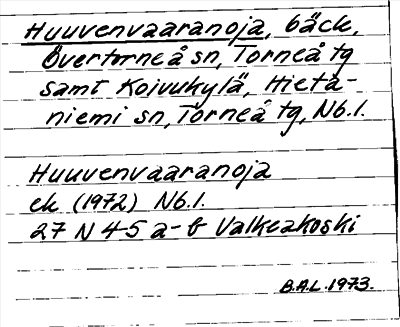 Huuvenvaaranoja, bäck,
Övertorneå sn, Torneå tg
samt Koivukylä, Hieta-
niemi sn, Torneå tg, Nb.l.
Huuvenvaaranoja
ek (1972) Nb.l.
27 N 4-5 a-b Valkeakoski
B.A.L. 1973.